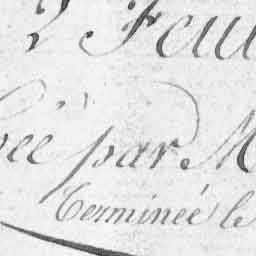 2 Feui
ée par M
Terminée le